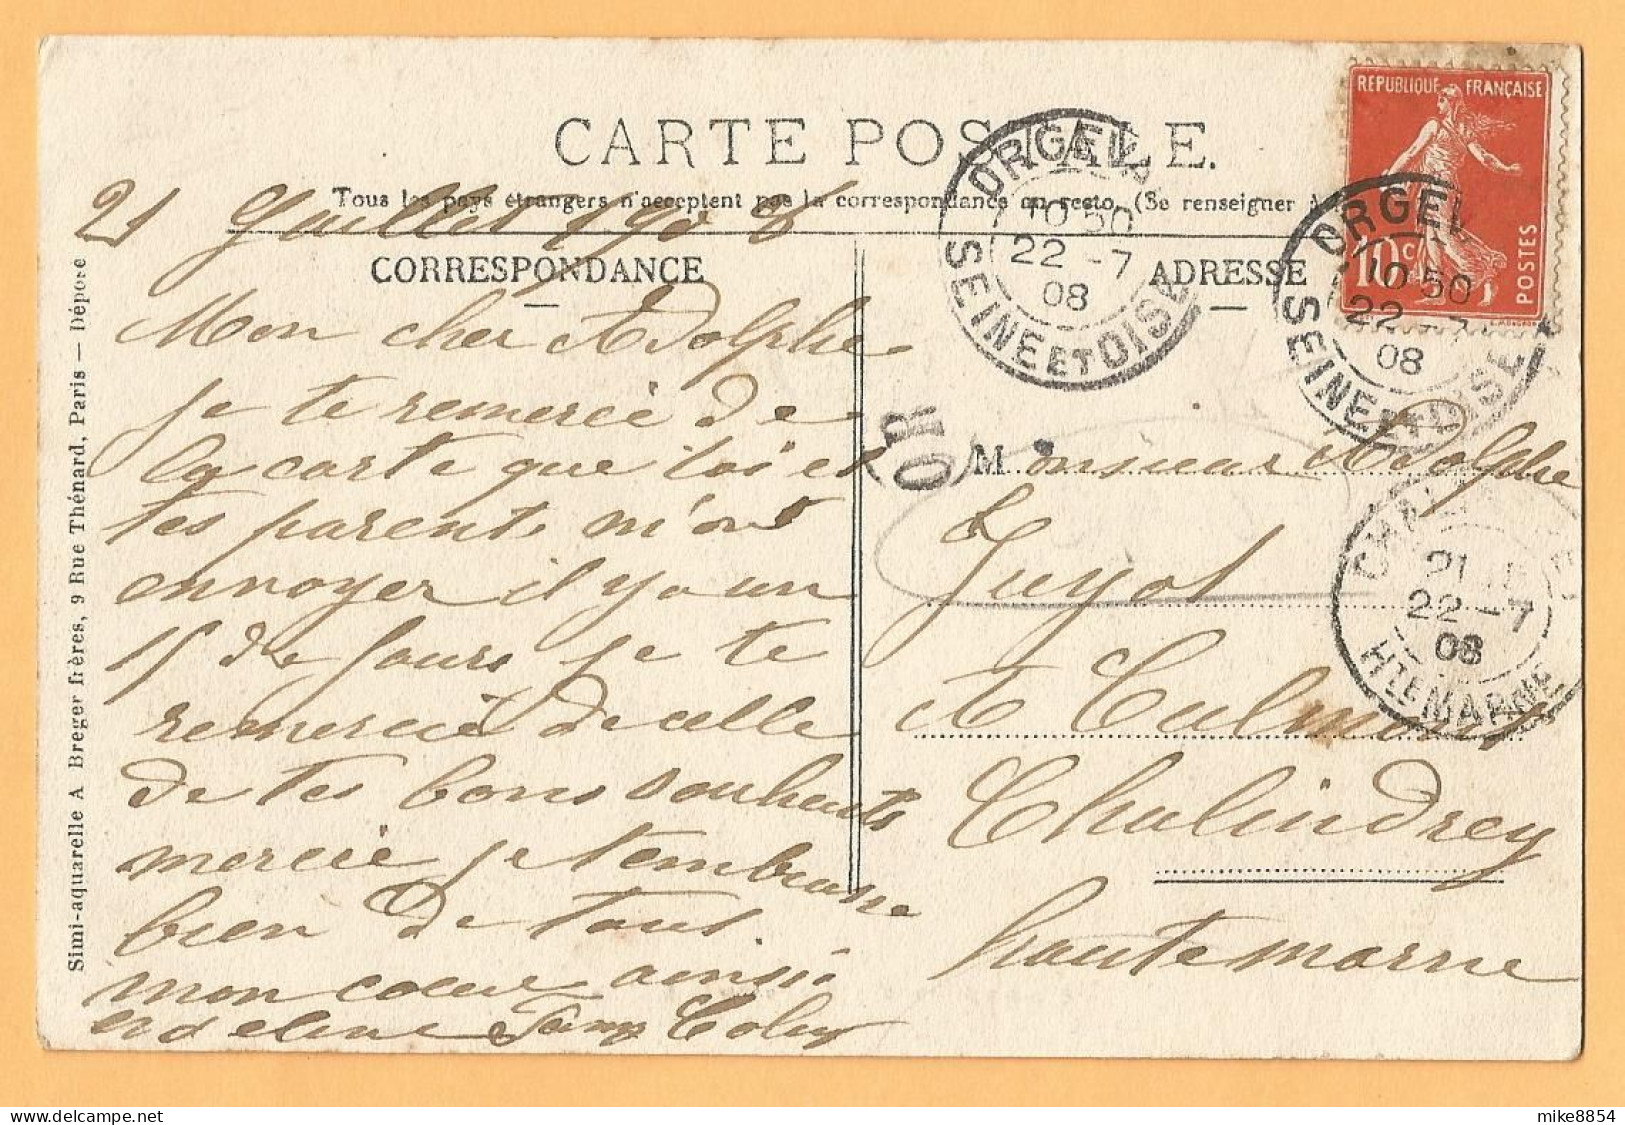 CARTE POSTALE.
Tous les pays étrangers n'acceptent pas la correspondance au recto. (Se renseigner
21 Juillet 1908
CORRESPONDANCE
Mon cher Adolphe
je te remercie de
la carte que toi et
tes parents m'ont
envoyer il y a un
15 de jours je te
remercie de celle
de tes bons souhaits
mercie je t'embrasse
bien de tout
mon coeur ainsi
Adeline
ADRESSE
Monsieur Adolphe
Guyot
A Culmont
Chalindrey
haute marne
REPUBLIQUE FRANÇAISE
10c
POSTES
ORGEVAL
10 50
22 -7
08
SEINE ET OISE
ORGEVAL
10 50
22 -7
08
SEINE ET OISE
OR
21
22 -7
08
HTE MARNE
Simi-aquarelle A Breger frères, 9 Rue Thénard, Paris — Déposé
mike8854